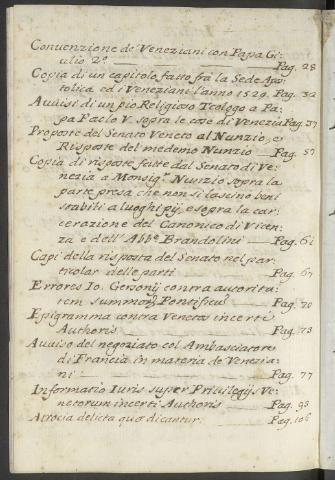 Conuenzione de' Veneziani con Papa Gi-
ulio 2º. Pag. 28
Copia di un capitolo fatto frà la Sede Apo-
tolica, ed i Veneziani l'anno 1529. Pag. 32
Auuisi di un pio Religioso Teologo a Pa-
pa Paolo V. sopra le cose di Venezia Pag. 37
Proposte del Senato Veneto al Nunzio, e
Risposte del medemo Nunzio Pag. 57
Copia di risposte fatte dal Senato di Ve-
nezia a Monsigr. Nunzio sopra la
parte presa che non si lascino beni
stabili a luoghi pij, e sopra la car-
cerazione del Canonico di Vicen-
za e dell' Abbe. Brandolini Pag. 61
Capi della risposta del Senato nel par-
ticolar delle parti Pag. 67
Errores Io. Gersonij contra autorita-
tem summorū Pontificū Pag. 70
Epigramma contra Venetos incerti
Authoris Pag. 73
Auuiso del negoziato col Ambasciatore
di Francia in materia de Venezia-
ni Pag. 77
Informatio Iuris super Priuilegijs Ve-
netorum incerti Authoris Pag. 95
Atrocia delicta quæ dicantur. Pag. 106